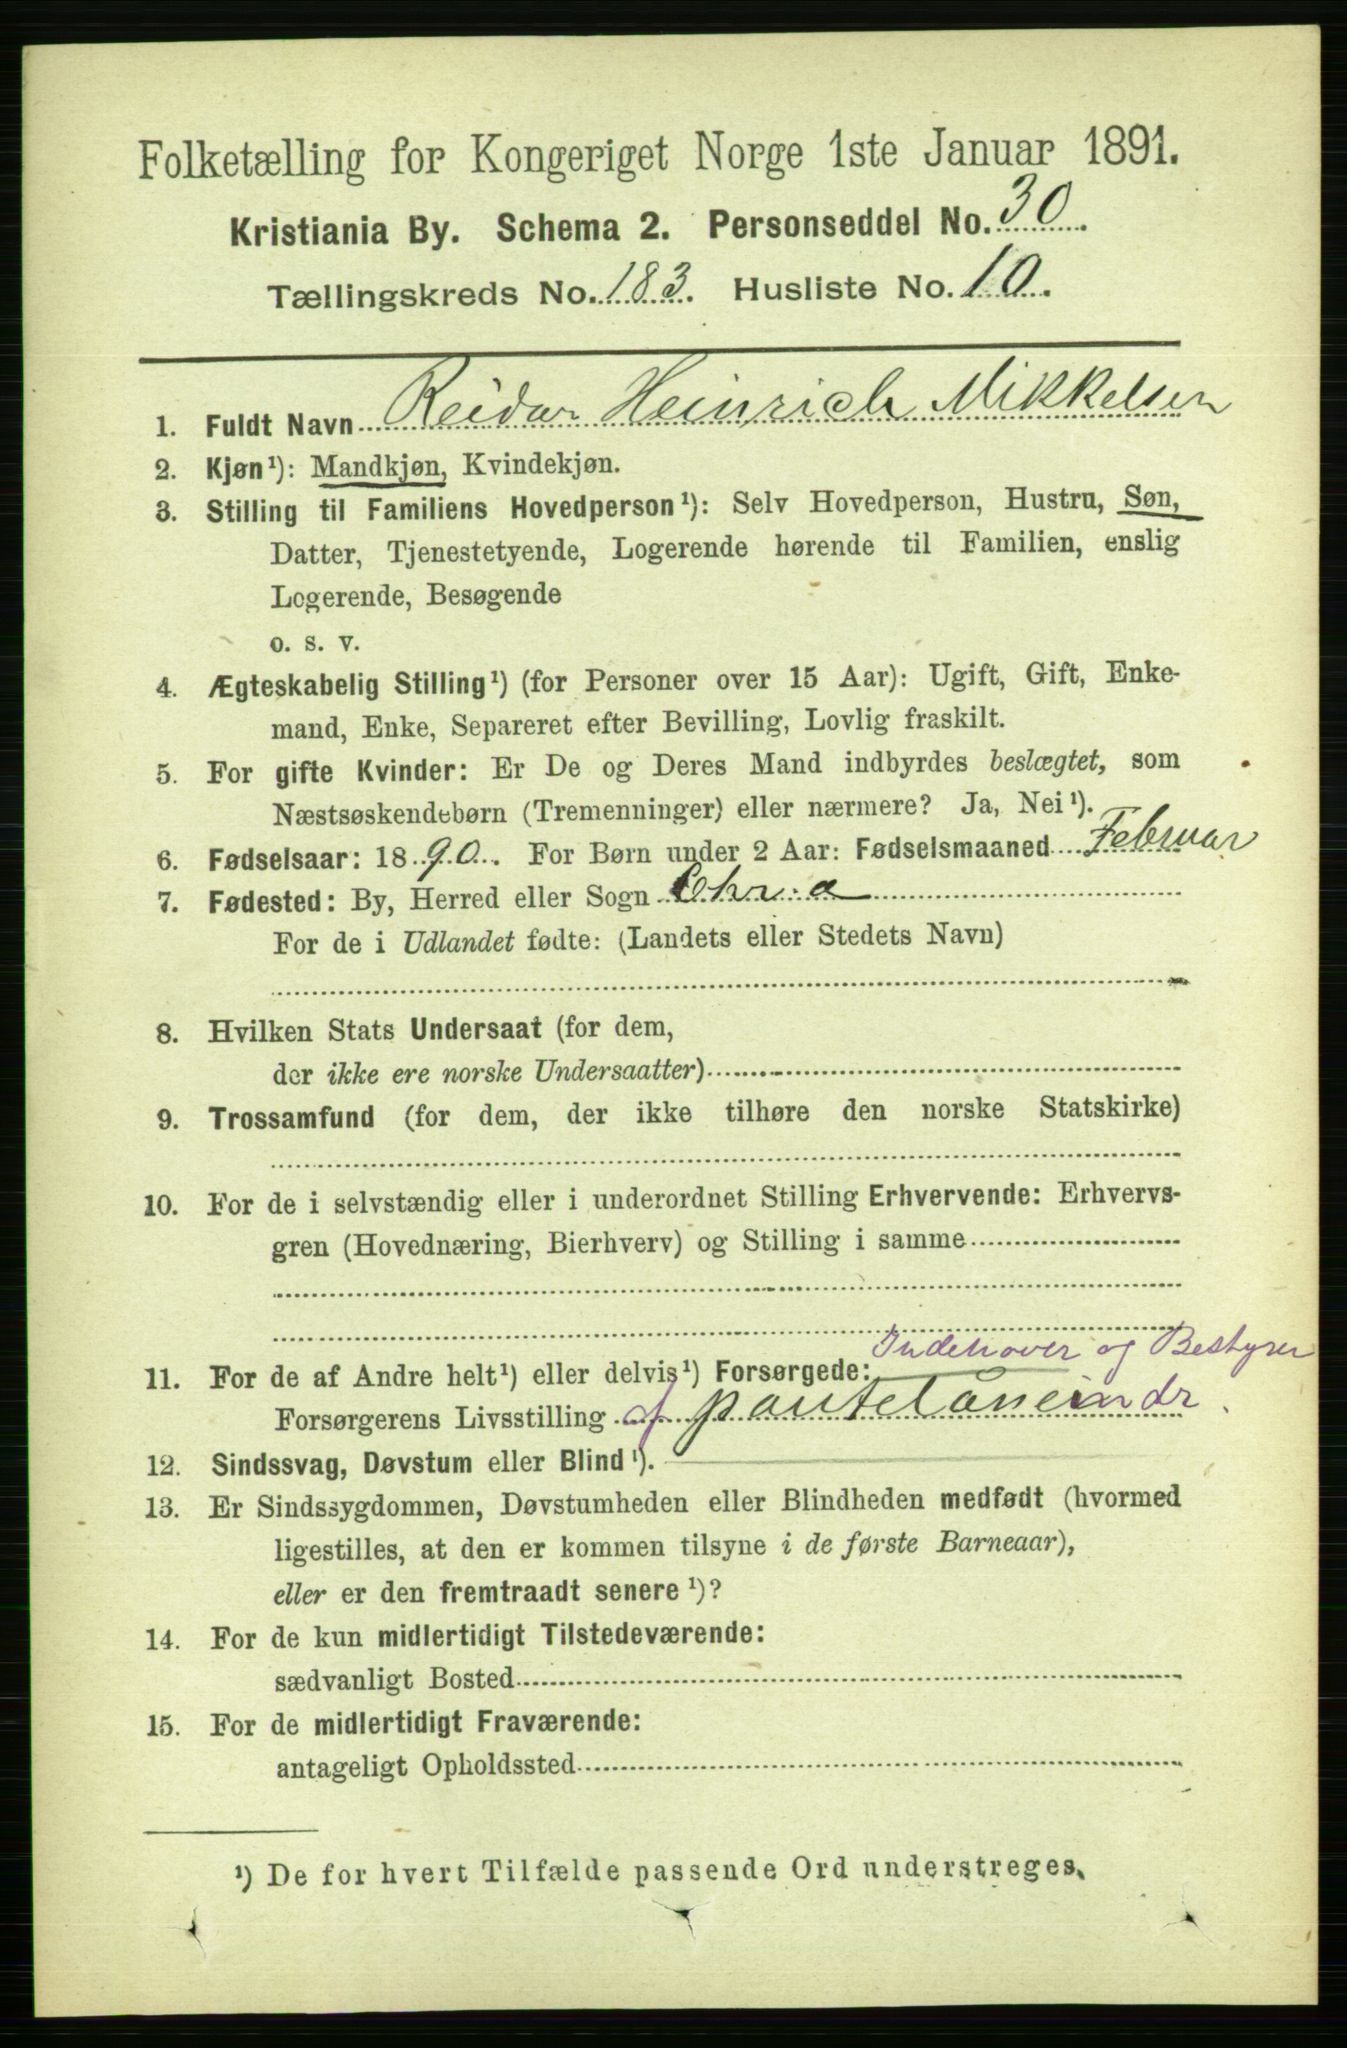 Folketælling for Kongeriget Norge 1ste Januar 1891.
Kristiania By. Schema 2. Personseddel No. 30.
Tællingskreds No. 183. Husliste No. 10.
1. Fuldt Navn Reidar Heinrich Mikkelsen
2. Kjøn¹): Mandkjøn, Kvindekjøn.
3. Stilling til Familiens Hovedperson¹): Selv Hovedperson, Hustru, Søn,
Datter, Tjenestetyende, Logerende hørende til Familien, enslig
Logerende, Besøgende
o. s. v.
4. Ægteskabelig Stilling¹) (for Personer over 15 Aar): Ugift, Gift, Enke-
mand, Enke, Separeret efter Bevilling, Lovlig fraskilt.
5. For gifte Kvinder: Er De og Deres Mand indbyrdes beslægtet, som
Næstsøskendebørn (Tremenninger) eller nærmere? Ja, Nei¹).
6. Fødselsaar: 1890. For Børn under 2 Aar: Fødselsmaaned Februar
7. Fødested: By, Herred eller Sogn Chr.a
For de i Udlandet fødte: (Landets eller Stedets Navn)
8. Hvilken Stats Undersaat (for dem,
der ikke ere norske Undersaatter)
9. Trossamfund (for dem, der ikke tilhøre den norske Statskirke)
10. For de i selvstændig eller i underordnet Stilling Erhvervende: Erhvervs-
gren (Hovednæring, Bierhverv) og Stilling i samme
Indehaver og Bestyrer
11. For de af Andre helt¹) eller delvis¹) Forsørgede:
Forsørgerens Livsstilling af pantelåneindr.
12. Sindssvag, Døvstum eller Blind¹).
13. Er Sindssygdommen, Døvstumheden eller Blindheden medfødt (hvormed
ligestilles, at den er kommen tilsyne i de første Barneaar),
eller er den fremtraadt senere¹)?
14. For de kun midlertidigt Tilstedeværende:
sædvanligt Bosted
15. For de midlertidigt Fraværende:
antageligt Opholdssted
¹) De for hvert Tilfælde passende Ord understreges.